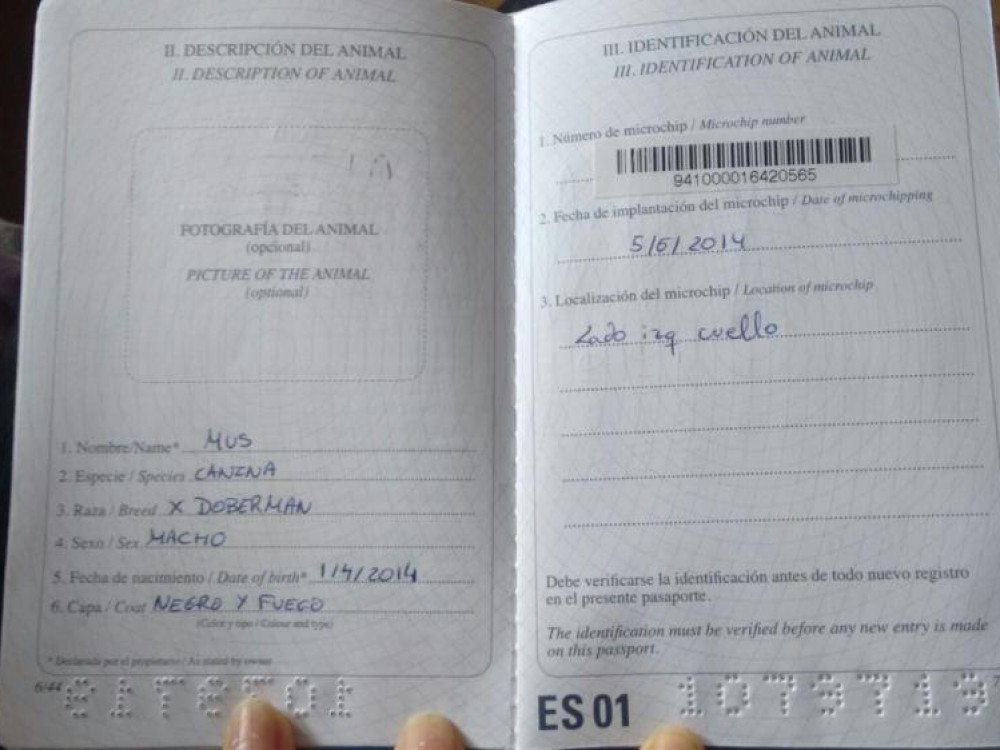 II. DESCRIPCIÓN DEL ANIMAL
II. DESCRIPTION OF ANIMAL
FOTOGRAFÍA DEL ANIMAL
(opcional)
PICTURE OF THE ANIMAL
(optional)
1. Nombre/Name* MUS
2. Especie / Species CANINA
3. Raza / Breed X DOBERMAN
4. Sexo / Sex MACHO
5. Fecha de nacimiento / Date of birth* 1/4/2014
6. Capa / Coat NEGRO Y FUEGO
(Color y tipo / Colour and type)
* Declarado por el propietario / As stated by owner
6/44
III. IDENTIFICACIÓN DEL ANIMAL
III. IDENTIFICATION OF ANIMAL
1. Número de microchip / Microchip number
941000016420565
2. Fecha de implantación del microchip / Date of microchipping
5/6/2014
3. Localización del microchip / Location of microchip
Lado izq cuello
Debe verificarse la identificación antes de todo nuevo registro
en el presente pasaporte.
The identification must be verified before any new entry is made
on this passport.
ES 01 1079719